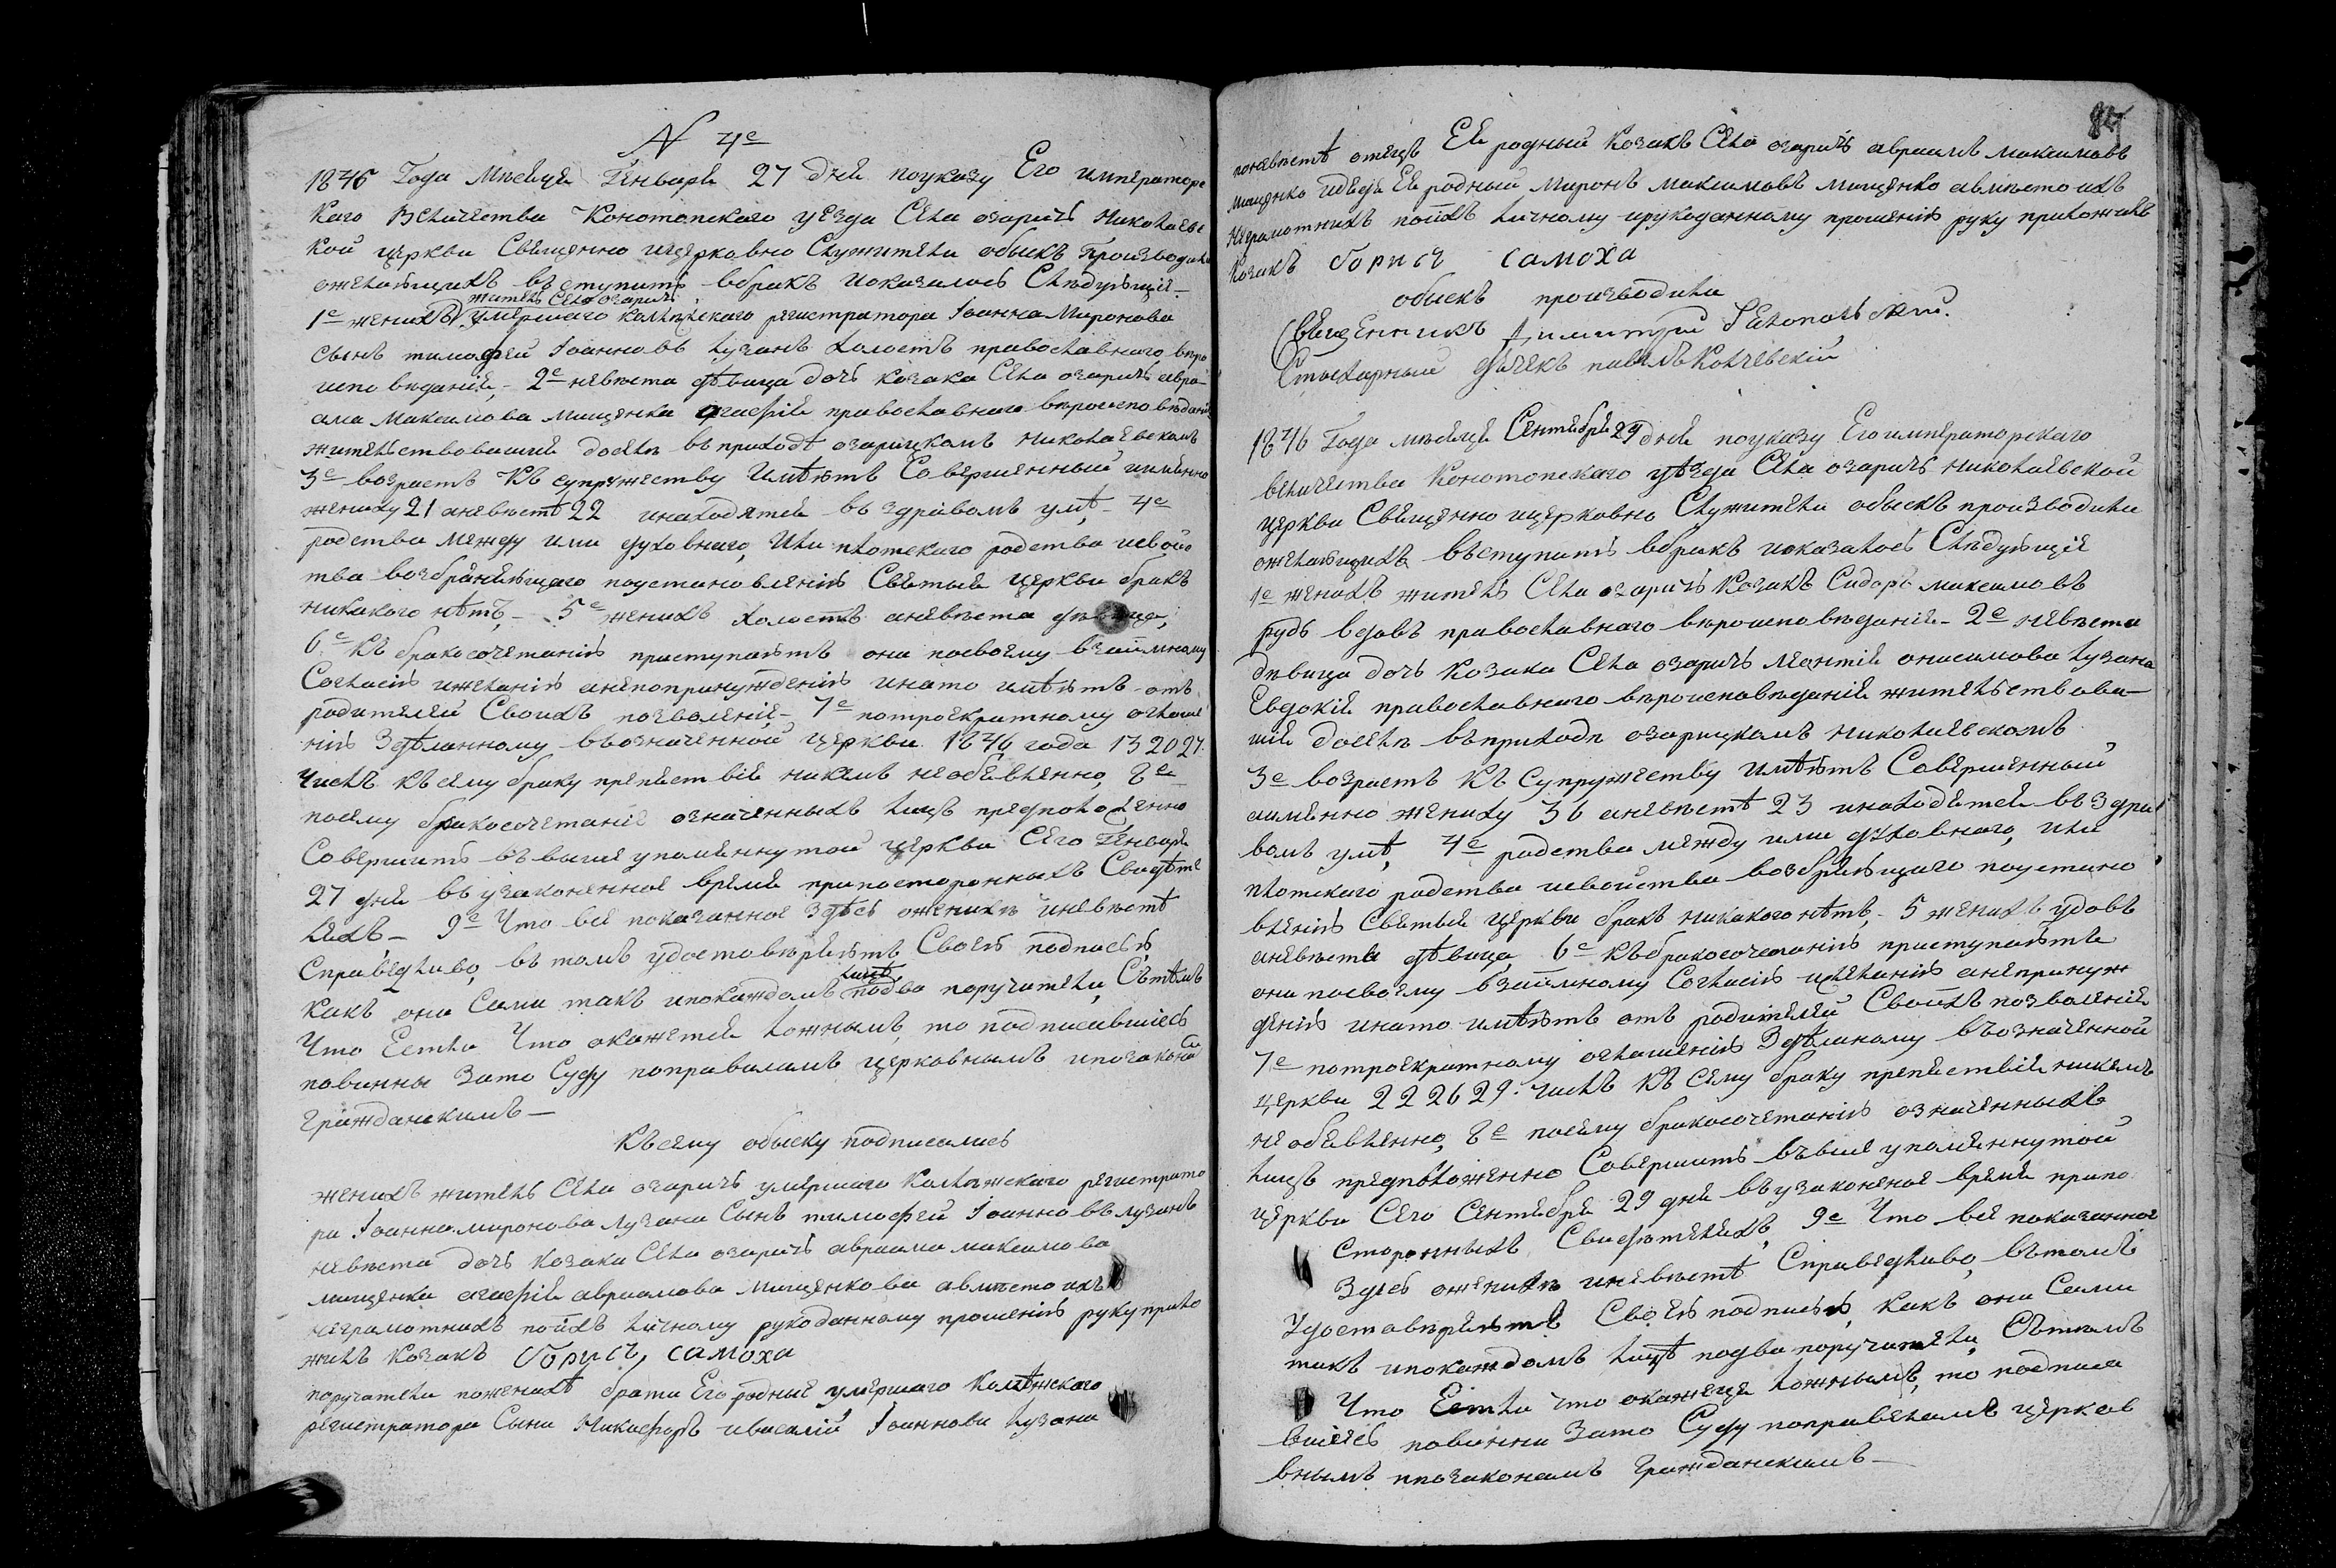 N 4е
1846 Года Мнсяця Генваря 27 дня поуказу Его императорс
каго Величества Конотопскаго уезда Села озаричь Николаевс
кой церкви Священно ицерковно Служители обыскъ Производили
ожелающихъ въступить вбракъ иоказалось Слѣдующее –
житель Села озаричь
1е женихъ умершаго колежскаго регистратора Іоанна Миронова
сынъ тимофей Іоанновъ лузанъ холостъ православнаго вѣро
исповѣданія, – 2е невѣста дѣвица дочь козака Села озаричь авра–
ама Максимова мищенка агафія православнаго вѣроисповѣданія
жительствовавшия доселѣ въприходѣ озарицкомъ николаевскомъ
3е возрастъ Къ супружеству Имѣютъ Совершенный иименно
жениху 21 аневѣстѣ 22 инаходятся въ здравомъ умѣ – 4е
родства между ими духовнаго, Или плотскаго родства исвойс
тва возбраняющаго поустановленію Святыя церкви бракъ
никакого нѣтъ, – 5е женихъ холостъ аневѣста дѣвица,
6е Къ бракосочетанію приступаютъ они посвоему взаимному
Согласію ижеланію анепопринужденію инато имѣютъ отъ
родителей Своихъ позволеніе – 7е потроекратному оглаше
нію Здѣланному въозначенной церкви 1846 года 13 20 27.
числъ къ сему браку препятствія никемъ необявленно, 8е
посему бракосочетаніе означенныхъ лицъ предположенно
Совершить въ выше упомянутой церкви Сего Генваря
27 дня въ узаконенное время припостороннихъ Свидѣте
ляхъ – 9е Что всё показанное Здѣсь оженихѣ иневѣстѣ
Справедливо, въ томъ удостовѣряютъ Своею подписью,
лицѣ
Какъ они Сами такъ ипокаждомъ подва поручители, Сътемъ
Что Естли Что окажется ложнымъ, то подписавшіесь
повинны Зато Суду поправиламъ церковнымъ ипозакона
Гражданскимъ –
Къ сему обыску подписались
женихъ житель Села озаричь умершаго Колежскаго регистрато
ра Іоанна миронова лузана Сынъ тимофей Іоанновъ лузанъ
невѣста дочь козака Села озаричь авраама максимова
мищенка агафія авраамова мищенкова авместо ихъ
неграмотнихъ поихъ личному рукоданному прошенію руку прило
жилъ Козакъ борисъ, самоха
поручатели поженихѣ брати Его родние умершаго Колежского
регистратора Сыни Никифоръ ивасилій Іоаннови лузани
поневѣстѣ отецъ Ея родный Козакъ Села озаричь авраамъ максимовъ
мищенко идядя Ея родный миронъ максимовъ мищенко авместо ихъ
неграмотнихъ поихъ личному ирукоданному прошенію руку приложилъ
Козакъ борисъ самоха
обыскъ производили
Священникъ Димитрій
Стихарный дячекъ павелъ
1846 Года мнсяця Сентября 29 дня поуказу Его императорскаго
величества Конотопскаго уѣзда Села озаричь николаевской
церкви Священно ицерковно Служители обыскъ производили
ожелающихъ въступить вбракъ иоказалось Слѣдующее
1е женихъ житель Села озаричь Козакъ Сидоръ максимовъ
рудь вдовъ православнаго вѣроисповѣданія – 2е невѣста
дѣвица дочь Козака Села озаричь леонтія онисимова лузана
Евдокія православнаго вѣроисповѣданія жительствова–
шія доселѣ въприходѣ озарицкомъ николаевскомъ
3е возрастъ Къ Супружеству Имѣютъ Совершенный
аименно жениху 36 аневѣстѣ 23 инаходятся въ здра
вомъ умѣ, 4е родства между ими духовнаго, или
плотскаго родства исвойства возбряющаго поустано
вленію Святыя церкви бракъ никакого нѣтъ, – 5 женихъ удовъ
аневѣста дѣвица, 6е Къ бракосочетанію приступаютъ
они посвоему взаимному Согласію ижеланію анепринуж
денію инато имѣютъ отъ родителей Своихъ позволенія
7е потроекратному оглашенію Здѣланому въозначенной
церкви 22 26 29. числъ Къ Сему браку препятствія никемъ
необявленно, 8е посему бракосочетанію означенныхъ
лицъ предположенно Совершить въвыше упомянутой
церкви Сего Сентября 29 дня въ узаконеное время припо
стороннихъ Свидѣтеляхъ, 9е Что всё показанное
Здесь оженихѣ иневѣстѣ Справедливо, вътомъ
Удостовѣряютъ Своею подписью, какъ они Сами
такъ ипокаждомъ лицѣ подва поручители, Сътемъ
Что Естли что окажеця ложнымъ, то подписа
вшіесь повинни Зато Суду поправиламъ церков
внымъ ипозаконамъ Гражданскимъ –